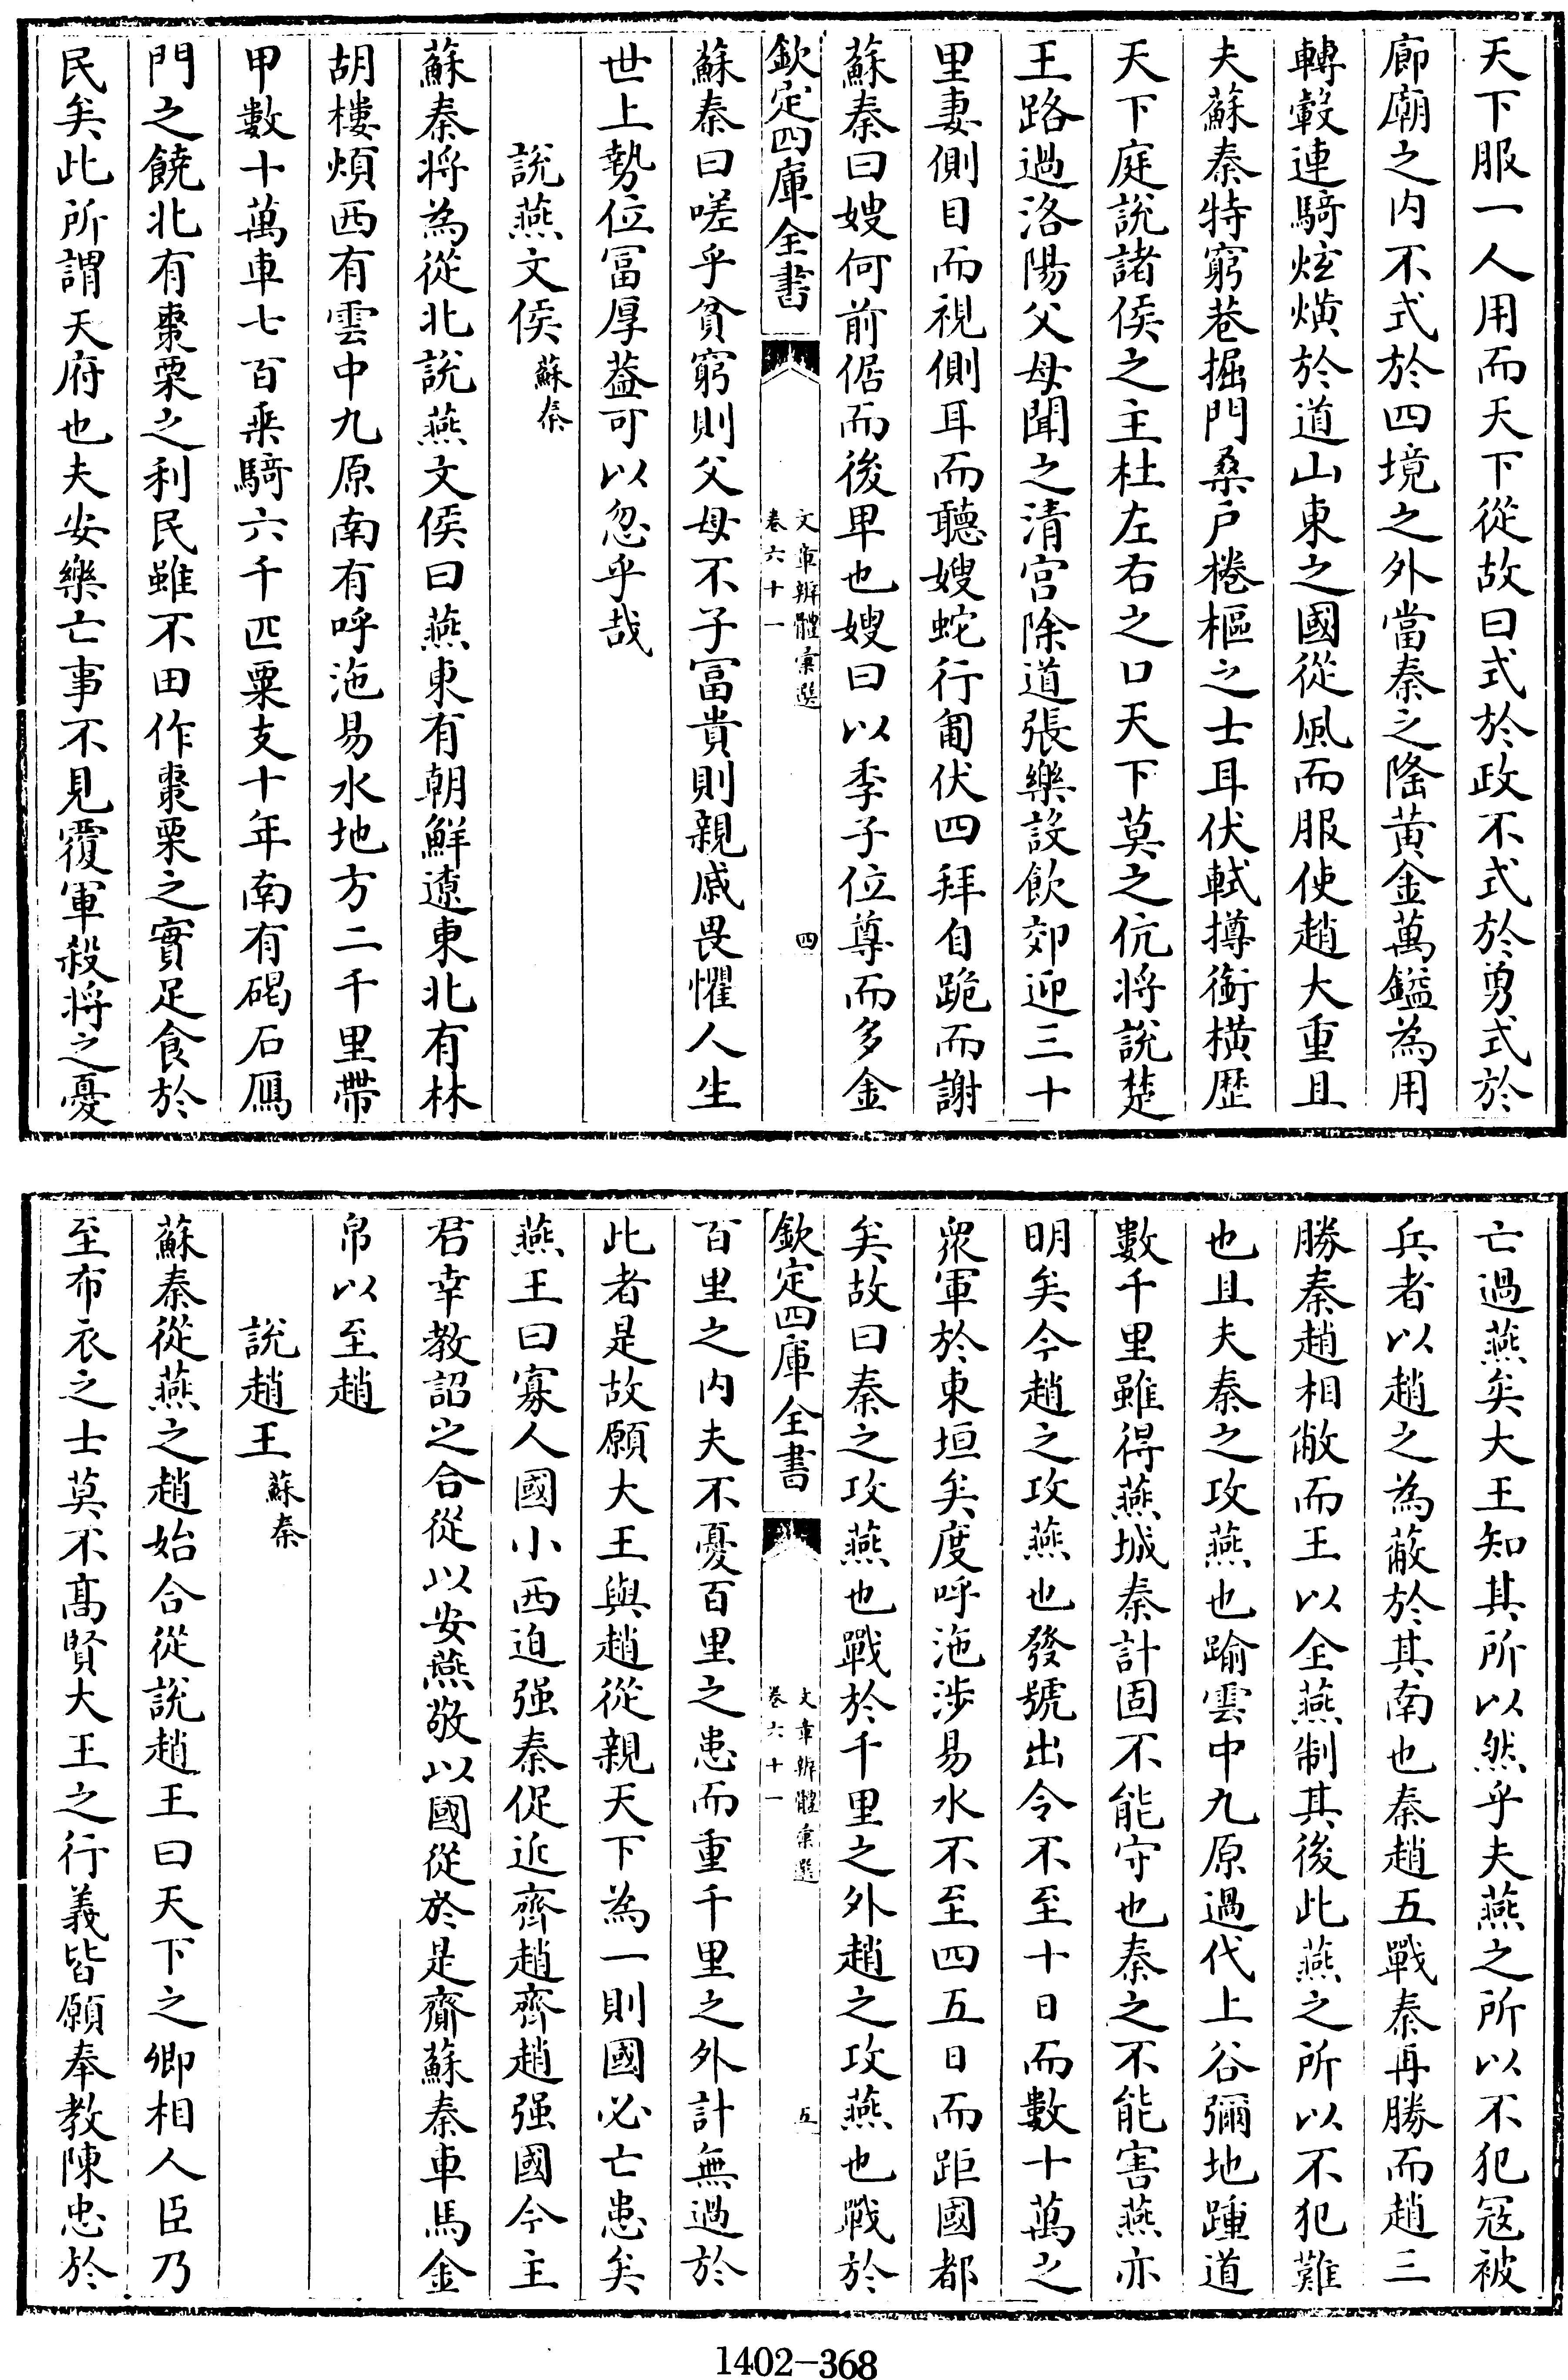 天下服一人用而天下從故曰式於政不式於勇式於
廊廟之内不式於四境之外當秦之隆黄金萬鎰為用
轉轂連騎炫熿於道山東之國從風而服使趙大重且
夫蘇秦特窮巷掘門桑户棬樞之士耳伏軾撙銜橫歴
天下庭說諸侯之主杜左右之口天下莫之伉将說楚
王路過洛陽父母聞之清宫除道張樂設飲郊迎三十
里妻側目而視側耳而聽嫂蛇行匍伏四拜自跪而謝
蘇秦曰嫂何前倨而後卑也嫂曰以季子位尊而多金
欽定四庫全書
文章辨體彚選
卷六十一
四
蘇秦曰嗟乎貧窮則父母不子富貴則親戚畏懼人生
世上勢位富厚葢可以忽乎哉
說燕文侯蘇秦
蘇秦将為從北說燕文侯曰燕東有朝鮮遼東北有林
胡樓煩西有雲中九原南有呼沲易水地方二千里帶
甲數十萬車七百乗騎六千匹粟支十年南有碣石鴈
門之饒北有棗栗之利民雖不田作棗栗之實足食於
民矣此所謂天府也夫安樂亡事不見覆軍殺将之憂
亡過燕矣大王知其所以然乎夫燕之所以不犯寇被
兵者以趙之為蔽於其南也秦趙五戰秦再勝而趙三
勝秦趙相敝而王以全燕制其後此燕之所以不犯難
也且夫秦之攻燕也踰雲中九原過代上谷彌地踵道
數千里雖得燕城秦計固不能守也秦之不能害燕亦
明矣今趙之攻燕也發號出令不至十日而數十萬之
衆軍於東垣矣度呼沲涉易水不至四五日而距國都
矣故曰秦之攻燕也戰於千里之外趙之攻燕也戰於
欽定四庫全書
文章辨體彚選
卷六十一
五
百里之内夫不憂百里之患而重千里之外計無過於
此者是故願大王與趙從親天下為一則國必亡患矣
燕王曰寡人國小西迫强秦促近齊趙齊趙强國今主
君幸教詔之合從以安燕敬以國從於是齎蘇秦車馬金
帛以至趙
說趙王蘇秦
蘇秦從燕之趙始合從說趙王曰天下之卿相人臣乃
至布衣之士莫不髙賢大王之行義皆願奉教陳忠於
1402-368